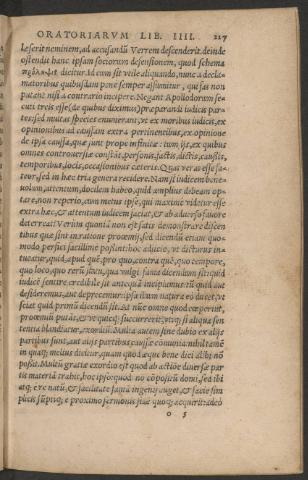 ORATORIARVM LIB. IIII. 217
læserit neminem, ad accusandū Verrem descenderit. deinde
ostendit hanc ipsam sociorum defensionem, quod schema
dicitur. Id cum sit utile aliquando, nunc a declamatoribus
quibusdam pene semper assumitur, qui fas non
putant nisi a contrario incipere. Negant Apollodorum secuti
treis esse (de quibus diximus) præparandi iudicis partes:
sed multas species enumerant, ut ex moribus iudicis, ex
opinionibus ad caussam extra pertinentibus, ex opinione
de ipsa caussa, quæ sunt prope infinitæ: tum ijs, ex quibus
omnes controuersiæ constāt, personis, factis, dictis, caussis,
temporibus, locis, occasionibus cæteris. Quas veras esse fateor,
sed in hæc tria genera residere. Nam si iudicem beneuolum,
attentum, docilem habeo, quid amplius debeam optare,
non reperio, cum metus ipse, qui maxime videtur esse
extra hæc, & attentum iudicem faciat, & ab aduerso fauore
deterreat. Verùm quoniā non est satis demonstrare discentibus
quæ sint in ratione proœmij, sed dicendū etiam quomodo
perfici facillime possint: hoc adijcio, vt dicturus intueatur,
quid, apud quē, pro quo, contra quē, quo tempore,
quo loco, quo rerū statu, qua vulgi fama dicendum sit: quid
iudicē sentire credibile sit antequā incipiamus: tū quid aut
desideremus, aut deprecemur: ipsa illum natura eò ducet, vt
sciat quid primū dicendū sit. At nūc omne quod cœperunt,
proœmiū putāt, & vt quicq; succurrerit, vtiq; si aliqua sententia
blandiatur, exordiū. Multa autem sine dubio ex alijs
partibus sunt, aut alijs partibus caussæ cōmunia: nihil tamē
in quaq; melius dicitur, quam quod æque bene dici alibi nō
possit. Multū gratiæ exordio est quod ab actiōe diuersæ partis
materiā trahit, hoc ipso quòd nō cōpositū domi, sed ibi
atq; è re natū, & facilitate famā ingenij auget, & facie simplicis
sūptiq; è proximo sermonis fidē quoq; acquirit: adeò
o 5